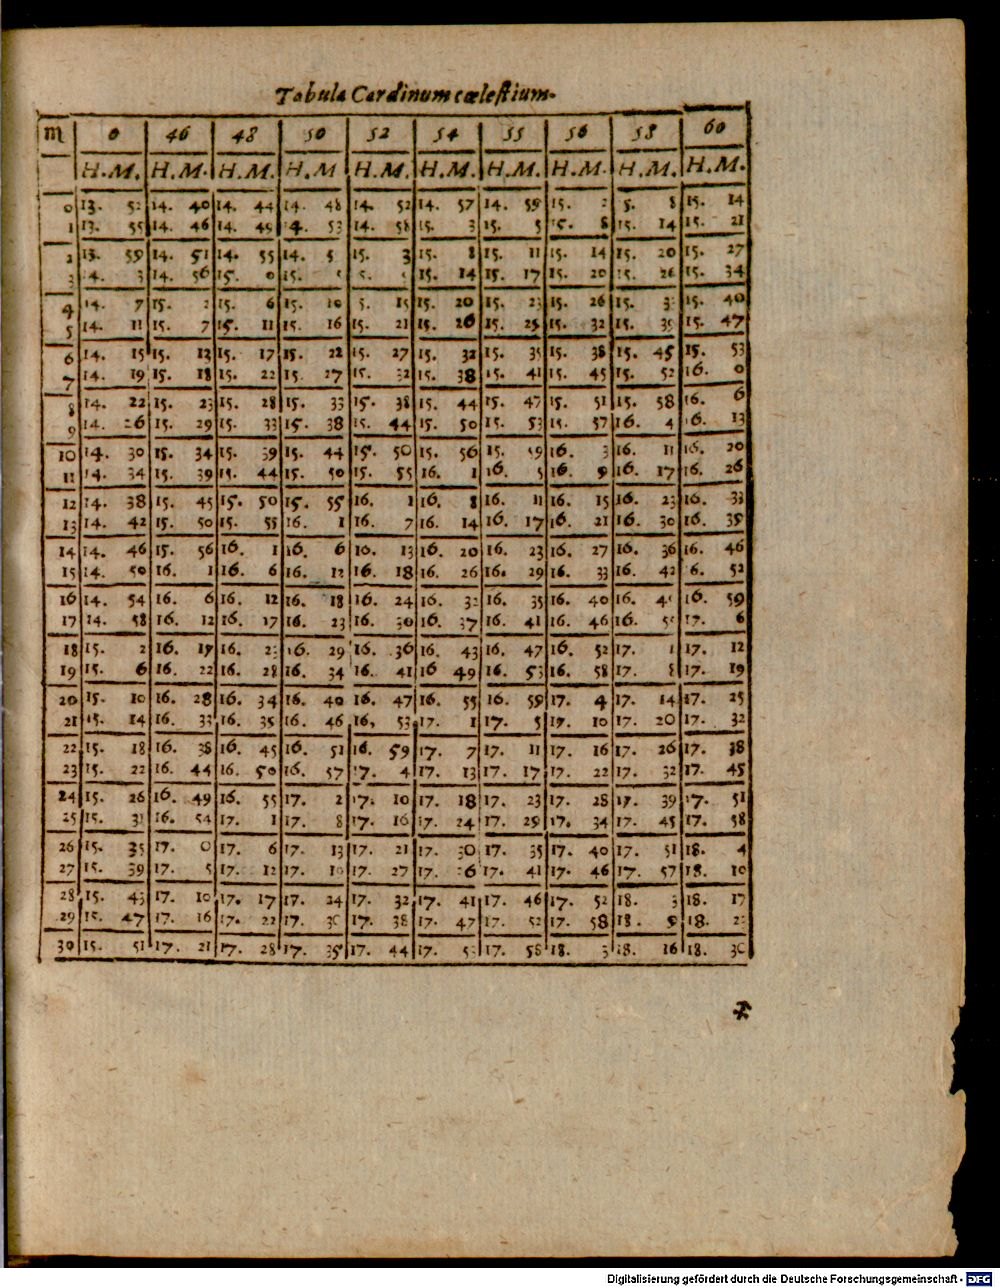 Tabula Cardinum cœlestium.
♏ 0 46 48 50 52 54 55 56 58 60
H.M. H.M. H.M. H.M H.M. H.M. H.M. H.M. H.M. H.M.
0 13. 52 14. 40 14. 44 14. 48 14. 52 14. 57 14. 59 15. 2 5. 8 15. 14
1 13. 55 14. 46 14. 49 14. 53 14. 58 15. 3 15. 5 15. 8 15. 14 15. 21
2 13. 59 14. 51 14. 55 14. 5 15. 3 15. 8 15. 11 15. 14 15. 20 15. 27
3 14. 3 14. 56 15. 0 15. 5. 15. 14 15. 17 15. 20 15. 26 15. 34
4 14. 7 15. 2 15. 6 15. 10 5. 15 15. 20 15. 23 15. 26 15. 3 15. 40
5 14. 11 15. 7 15. 11 15. 16 15. 21 15. 26 15. 29 15. 32 15. 39 15. 47
6 14. 15 15. 13 15. 17 15. 22 15. 27 15. 32 15. 35 15. 38 15. 45 15. 53
7 14. 19 15. 18 15. 22 15. 27 15. 32 15. 38 15. 41 15. 45 15. 52 16. 0
8 14. 22 15. 23 15. 28 15. 33 15. 38 15. 44 15. 47 15. 51 15. 58 16. 6
9 14. 26 15. 29 15. 33 15. 38 15. 44 15. 50 15. 53 15. 57 16. 4 16. 13
10 14. 30 15. 34 15. 39 15. 44 15. 50 15. 56 15. 59 16. 3 16. 11 16. 20
11 14. 34 15. 39 15. 44 15. 50 15. 55 16. 1 16. 5 16. 9 16. 17 16. 26
12 14. 38 15. 45 15. 50 15. 55 16. 1 16. 8 16. 11 16. 15 16. 23 16. 33
13 14. 42 15. 50 15. 55 16. 1 16. 7 16. 14 16. 17 16. 21 16. 30 16. 39
14 14. 46 15. 56 16. 1 16. 6 16. 13 16. 20 16. 23 16. 27 16. 36 16. 46
15 14. 50 16. 1 16. 6 16. 12 16. 18 16. 26 16. 29 16. 33 16. 42 6. 52
16 14. 54 16. 6 16. 12 16. 18 16. 24 16. 32 16. 35 16. 40 16. 4 16. 59
17 14. 58 16. 12 16. 17 16. 23 16. 30 16. 37 16. 41 16. 46 16. 5 17. 6
18 15. 2 16. 17 16. 23 16. 29 16. 36 16. 43 16. 47 16. 52 17. 1 17. 12
19 15. 6 16. 22 16. 28 16. 34 16. 41 16 49 16. 53 16. 58 17. 8 17. 19
20 15. 10 16. 28 16. 34 16. 40 16. 47 16. 55 16. 59 17. 4 17. 14 17. 25
21 15. 14 16. 33 16. 39 16. 46 16, 53 17. 1 17. 5 17. 10 17. 20 17. 32
22 15. 18 16. 38 16. 45 16. 51 16. 59 17. 7 17. 11 17. 16 17. 26 17. 38
23 15. 22 16. 44 16. 50 16. 57 17. 4 17. 13 17. 17 17. 22 17. 32 17. 45
24 15. 26 16. 49 16. 55 17. 2 17. 10 17. 18 17. 23 17. 28 17. 39 17. 51
25 15. 31 16. 54 17. 1 17. 8 17. 16 17. 24 17. 29 17. 34 17. 45 17. 58
26 15. 35 17. 0 17. 6 17. 13 17. 21 17. 30 17. 35 17. 40 17. 51 18. 4
27 15. 39 17. 5 17. 12 17. 19 17. 27 17. 36 17. 41 17. 46 17. 57 18. 10
28 15. 43 17. 10 17. 17 17. 24 17. 32 17. 41 17. 46 17. 52 18. 3 18. 17
29 15. 47 17. 16 17. 22 17. 30 17. 38 17. 47 17. 52 17. 58 18. 9 18. 23
30 15. 51 17. 21 17. 28 17. 35 17. 44 17. 53 17. 58 18. 3 18. 16 18. 30
Digitalisierung gefördert durch die Deutsche Forschungsgemeinschaft - DFG